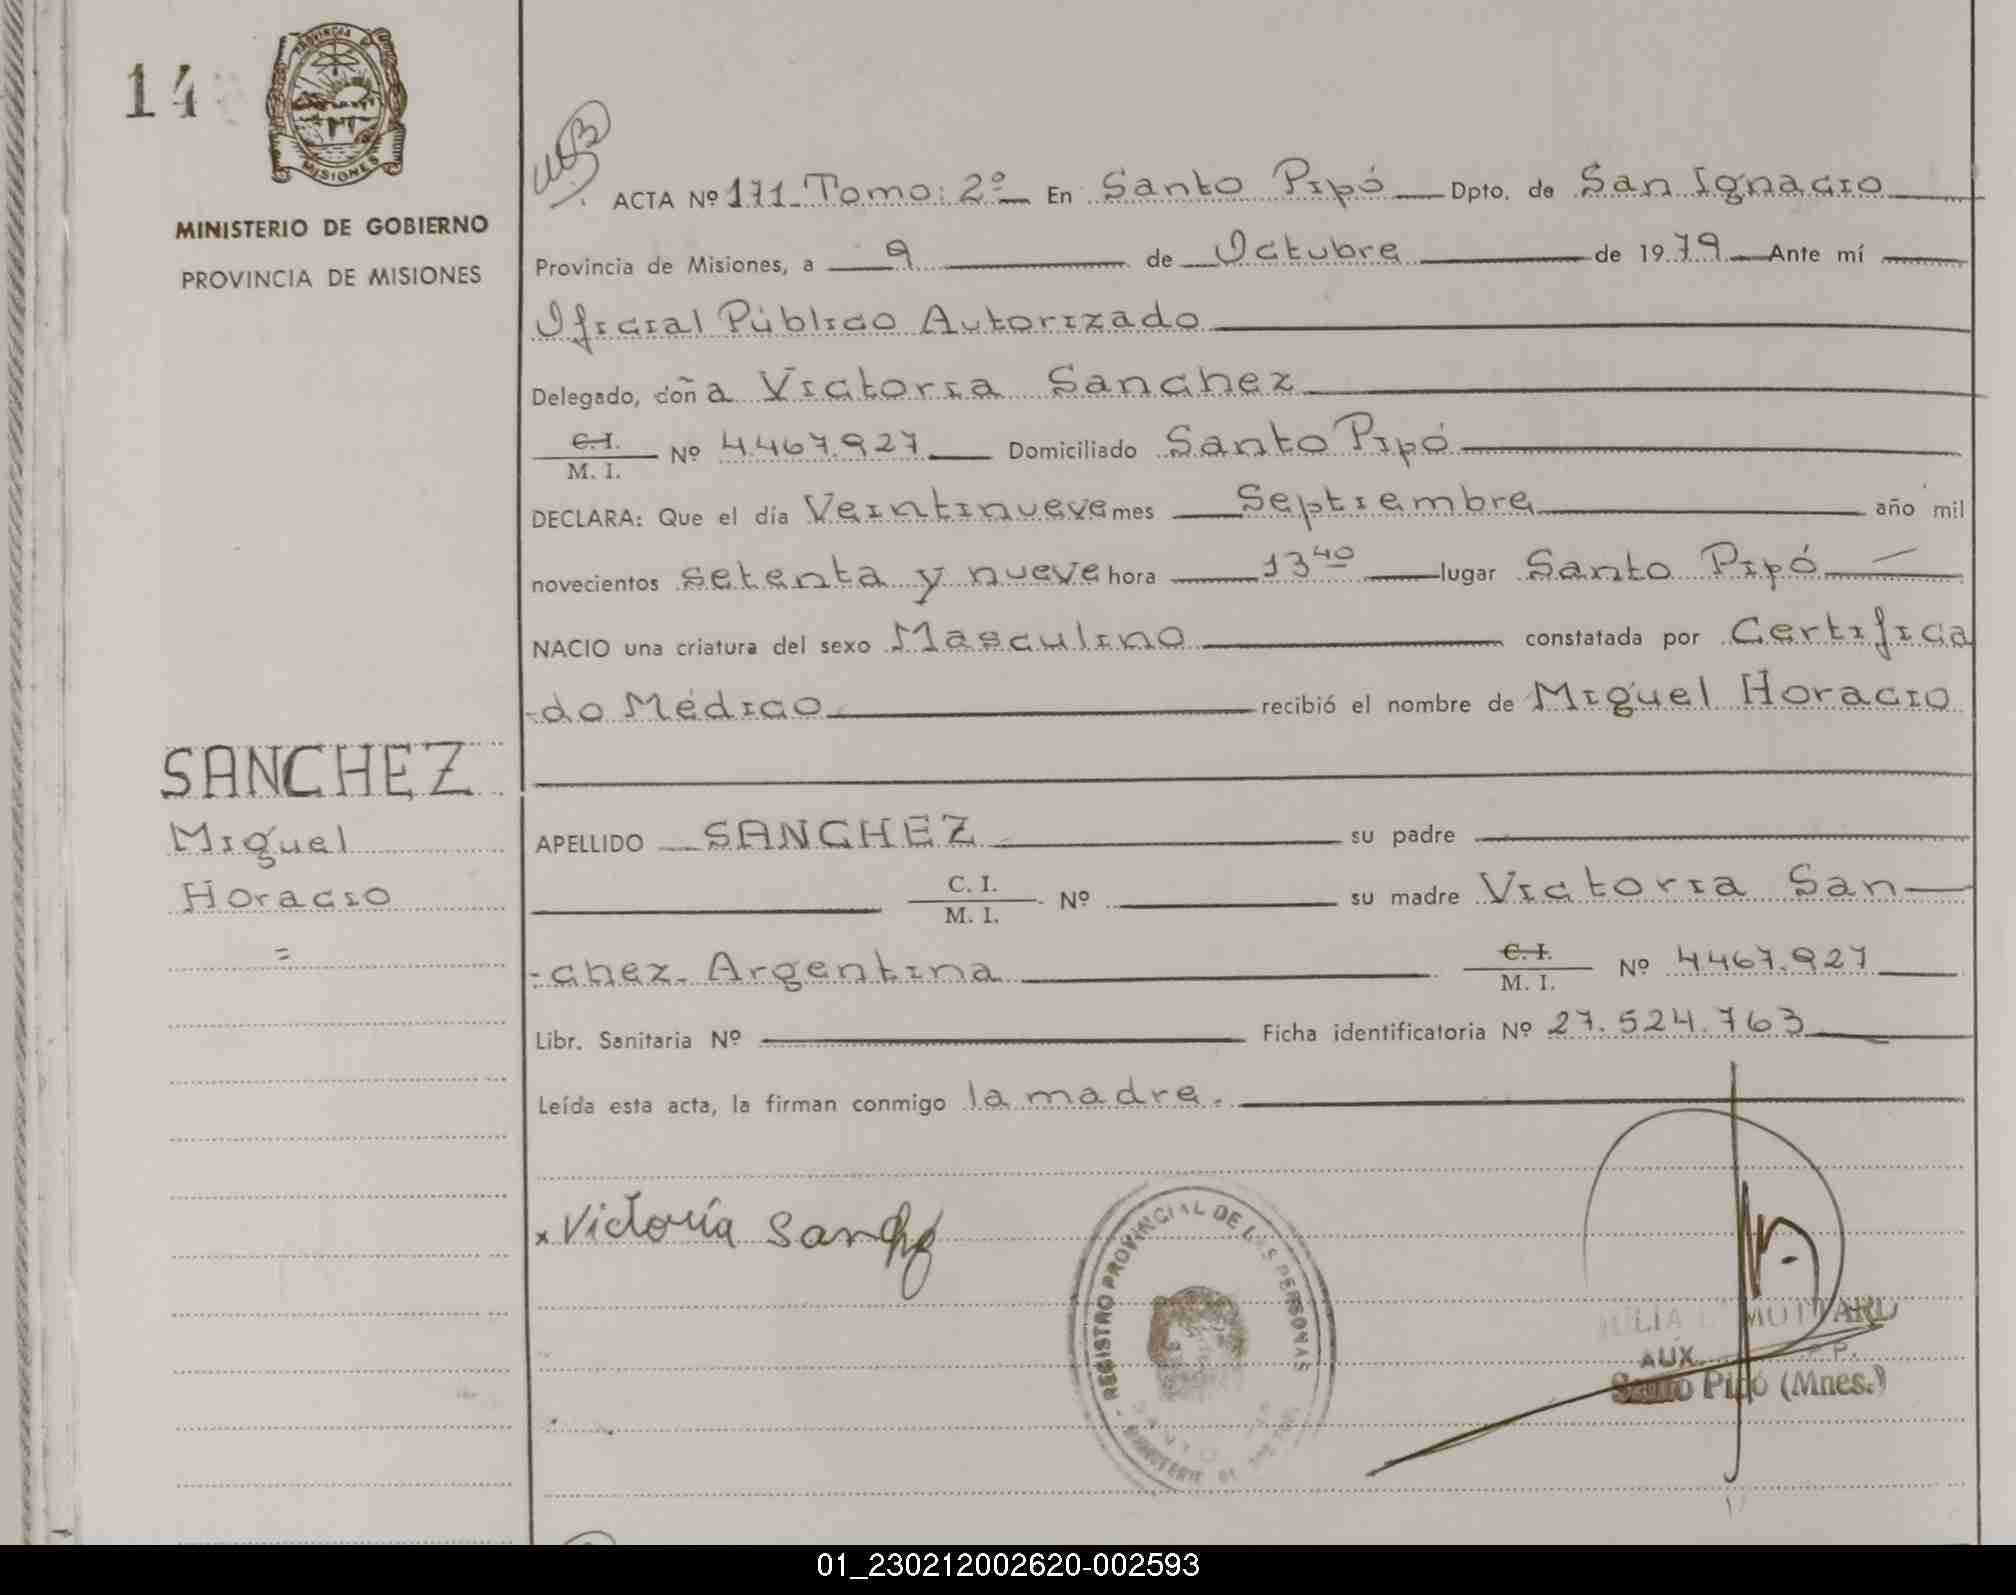 14
PROVINCIA DE
MISIONES
MINISTERIO DE GOBIERNO
PROVINCIA DE MISIONES
ACTA Nº 171. Tomo: 2º En Santo Pipó Dpto. de San Ignacio
Provincia de Misiones, a 9 de Octubre de 1979 Ante mí
Oficial Público Autorizado
Delegado, doña Victoria Sanchez
C. I.
M. I. Nº 4.467.927 Domiciliado Santo Pipó
DECLARA: Que el día Veintinueve mes Septiembre año mil
novecientos setenta y nueve hora 13 40 lugar Santo Pipó
NACIO una criatura del sexo Masculino constatada por Certifica
-do Médico recibió el nombre de Miguel Horacio
SANCHEZ
Miguel
Horacio
=
APELLIDO SANCHEZ su padre
C. I.
M. I. Nº su madre Victoria San
-chez. Argentina C. I.
M. I. Nº 4.467.927
Libr. Sanitaria Nº Ficha identificatoria Nº 27.524.763
Leída esta acta, la firman conmigo la madre.
x Victoria Sanchez
REGISTRO PROVINCIAL DE LAS PERSONAS
AUX.
Santo Pipó (Mnes.)
01_230212002620-002593